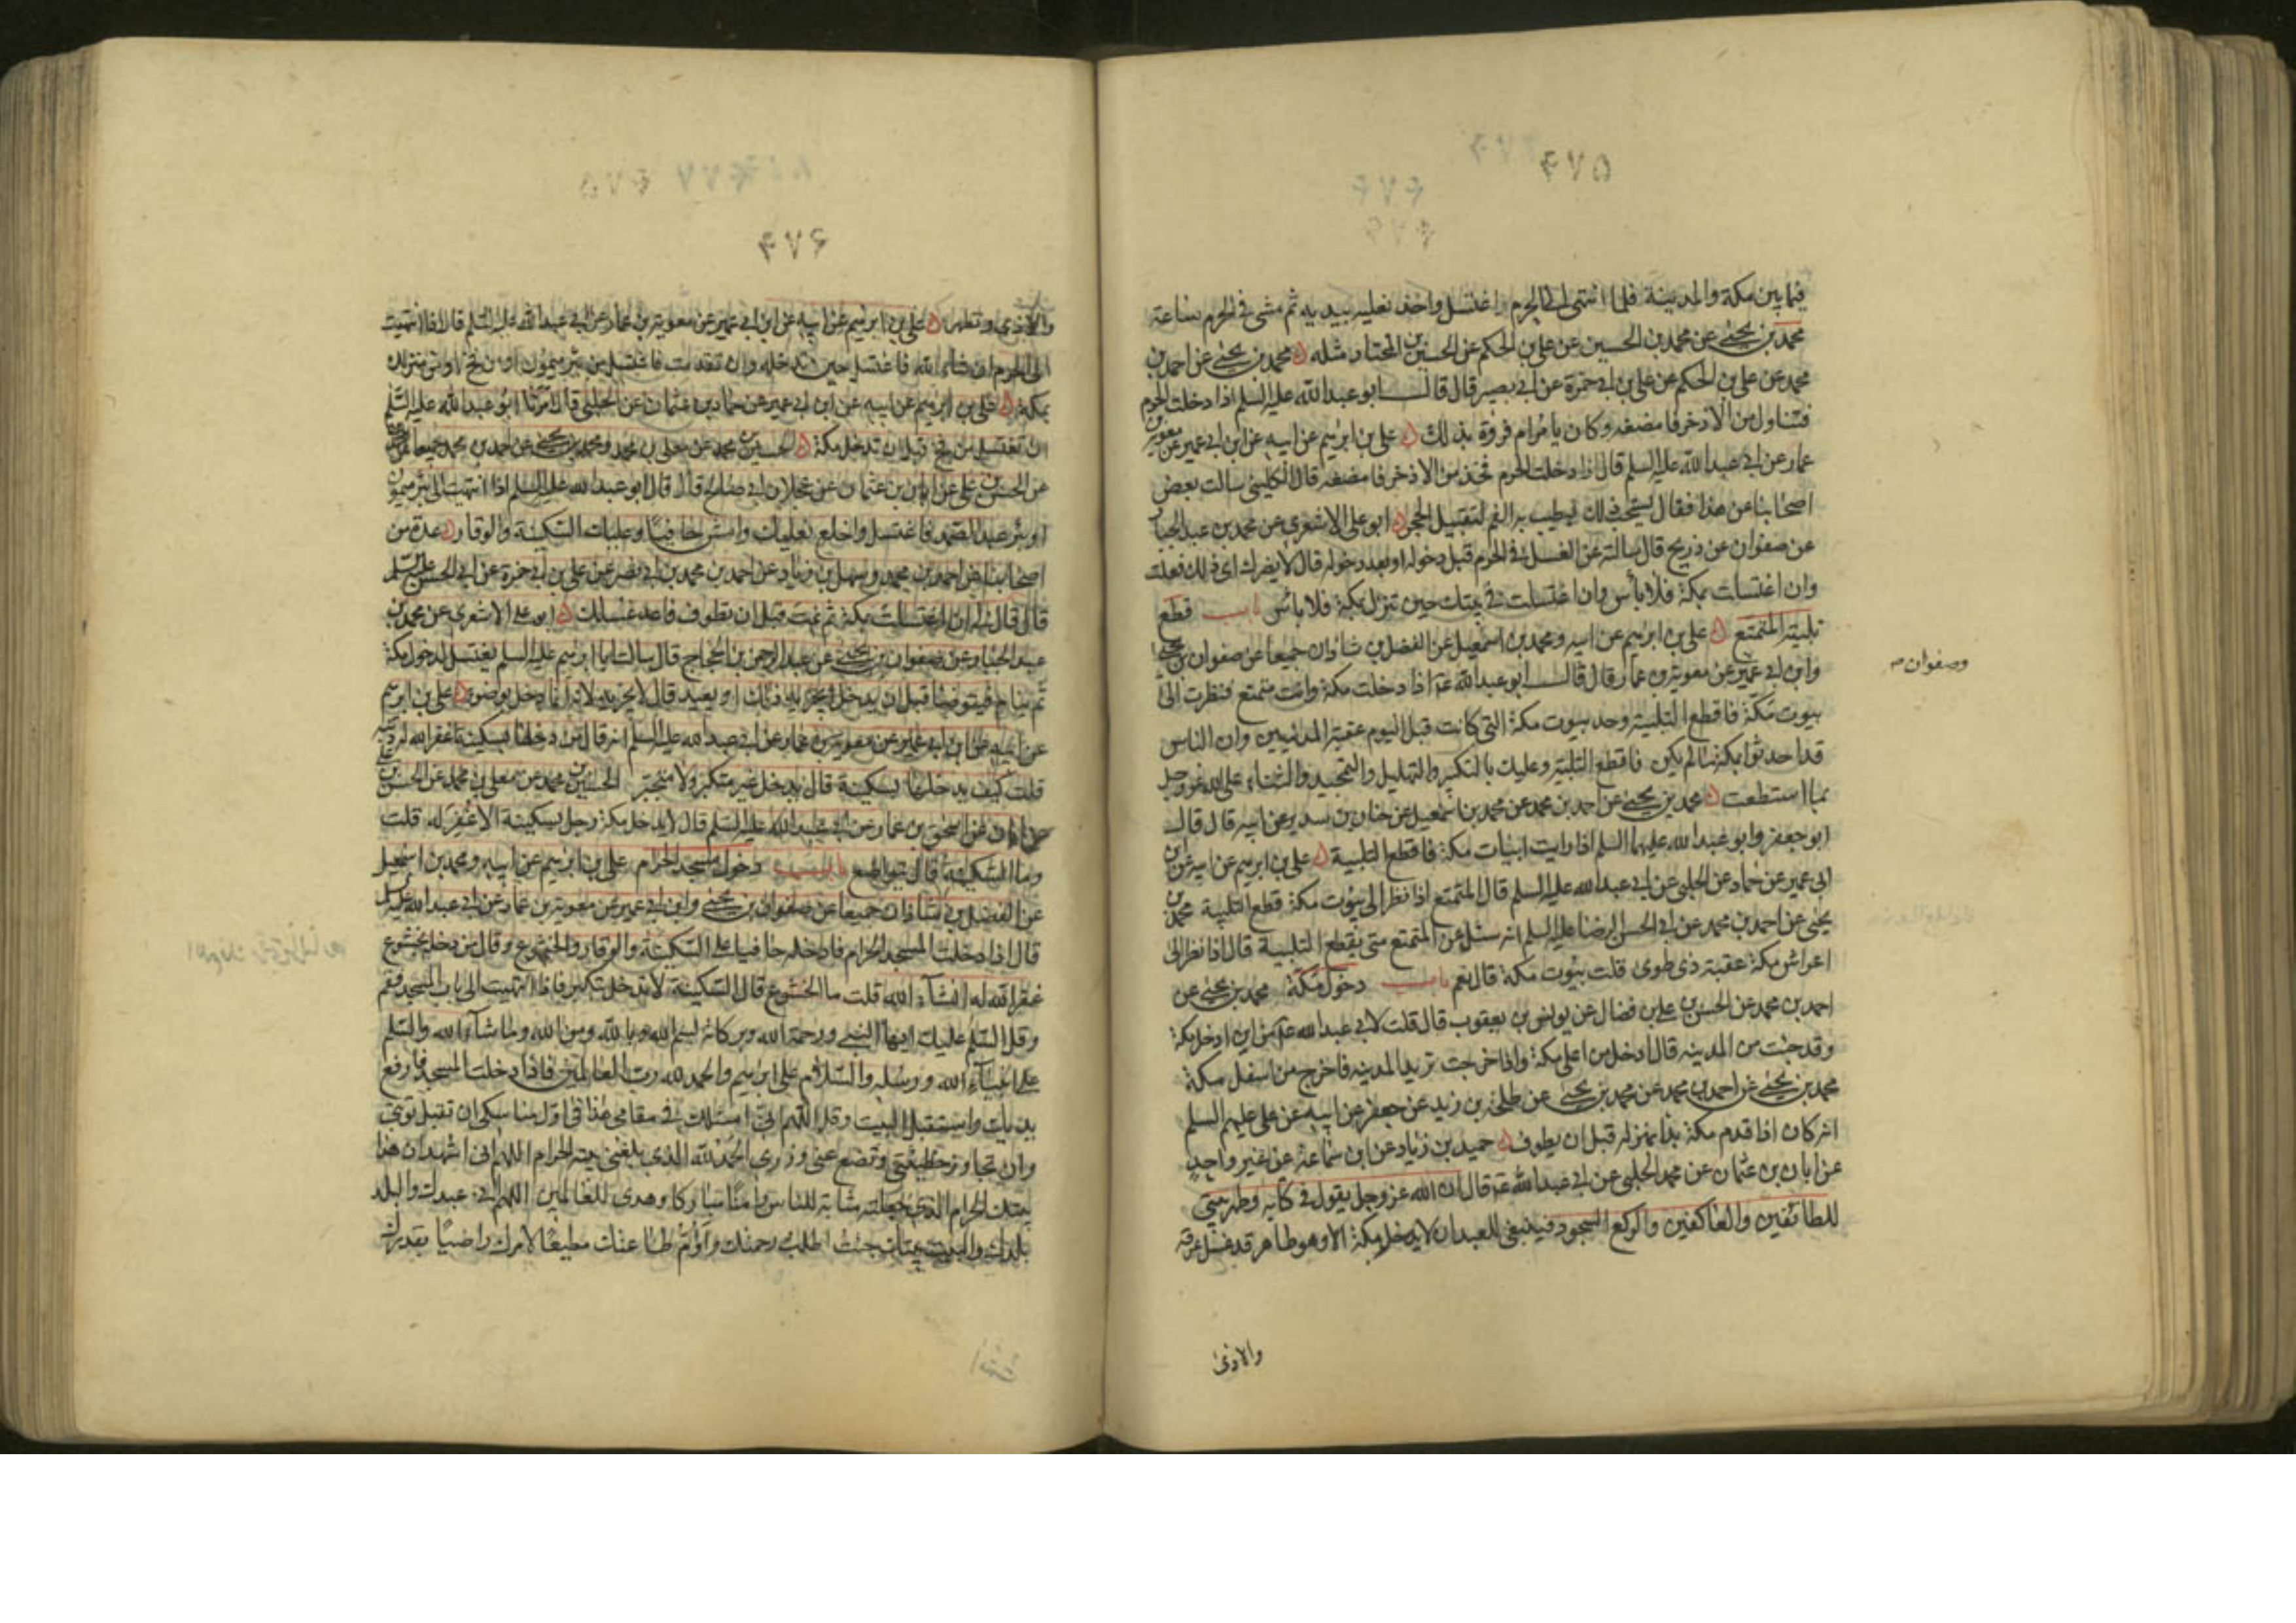 ۴۷۵
فيما بين مكة والمدينة فلما انتهى الى الحرم اغتسل واخذ نعليه بيديه ثم مشى فى الحرم ساعة
محمد بن يحيى عن محمد بن الحسين عن على بن الحكم عن الحسين بن المختار مثله محمد بن يحيى عن احمد بن
محمد عن على بن الحكم عن على بن ابى حمزة عن ابى بصير قال قال ابو عبد الله عليه السلم اذا دخلت الحرم
فتناول من الاذخر فامضغه وكان يامر ام فروة بذلك على بن ابرهيم عن ابيه عن ابن ابى عمير عن معوية بن
عمار عن ابى عبد الله عليه السلم قال اذا دخلت الحرم فخذ من الاذخر فامضغه قال الكلينى سالت بعض
اصحابنا عن هذا فقال يستحب ذلك ليطيب به الفم لتقبيل الحجر ابو على الاشعرى عن محمد بن عبد الجبار
عن صفوان عن ذريح قال سالته عن الغسل فى الحرم قبل دخوله او بعد دخوله قال لا يضرك اى ذلك فعلت
وان اغتسلت بمكة فلا بأس وان اغتسلت فى بيتك حين تنزل بمكة فلا باس باب قطع
تلبية المتمتع على بن ابرهيم عن ابيه ومحمد بن اسمعيل عن الفضل بن شاذان جميعا عن صفوان بن يحيى
وابن ابى عمير عن معوية بن عمار قال قال ابو عبد الله ع اذا دخلت مكة وانت متمتع فنظرت الى
وصفوان
بيوت مكة فاقطع التلبية وحد بيوت مكة التى كانت قبل اليوم عقبة المدنيين وان الناس
قد احدثوا بمكة ما لم يكن فاقطع التلبية وعليك بالتكبير والتهليل والتحميد والثناء على الله عز وجل
بما استطعت محمد بن يحيى عن احمد بن محمد عن محمد بن اسمعيل عن حنان بن سدير عن ابيه قال قال
ابو جعفر وابو عبد الله عليهما السلم اذا رايت ابيات مكة فاقطع التلبية على بن ابرهيم عن ابيه عن ابن
ابى عمير عن حماد عن الحلبى عن ابى عبد الله عليه السلم قال المتمتع اذا نظر الى بيوت مكة قطع التلبية محمد بن
يحيى عن احمد بن محمد عن ابى الحسن الرضا عليه السلم انه سئل عن المتمتع متى يقطع التلبية قال اذا نظر الى
اعراش مكة عقبة ذى طوى قلت بيوت مكة قال نعم باب دخول مكة محمد بن يحيى عن
احمد بن محمد عن الحسن بن على بن فضال عن يونس بن يعقوب قال قلت لابى عبد الله ع من اين ادخل مكة
وقد جئت من المدينه قال ادخل من اعلى مكة واذا خرجت تريد المدينه فاخرج من اسفل مكة
محمد بن يحيى عن احمد بن محمد عن محمد بن يحيى عن طلحة بن زيد عن جعفر عن ابيه عن على عليهم السلم
انه كان اذا قدم مكة بدا بمنزله قبل ان يطوف حميد بن زياد عن ابن سماعة عن غير واحد
عن ابان بن عثمان عن محمد الحلبى عن ابى عبد الله ع قال ان الله عز وجل يقول فى كتابه وطهر بيتى
للطائفين والعاكفين والركع السجود فينبغى للعبد ان لا يدخل مكة الا وهو طاهر قد غسل عرقه
والاذى
۴۷۶
والاذى وتطهر على بن ابرهيم عن ابيه عن ابن ابى عمير عن معوية بن عمار عن ابى عبد الله عليه السلم قال اذا انتهيت
الى الحرم ان شاء الله فاغتسل حين تدخله وان تقدمت فاغتسل من بئر ميمون او من فخ او من منزلك
بمكة على بن ابرهيم عن ابيه عن ابن ابى عمير عن حماد بن عثمان عن الحلبى قال امرنا ابو عبد الله عليه السلم
ان نغتسل من فخ قبل ان ندخل مكة الحسين بن محمد عن معلى بن محمد ومحمد بن يحيى عن احمد بن محمد جميعا
عن الحسن بن على عن ابان بن عثمان عن عجلان ابى صالح قال قال ابو عبد الله عليه السلم اذا انتهيت الى بئر ميمون
او بئر عبد الصمد فاغتسل واخلع نعليك وامش حافيا وعليك السكينة والوقار عدة من
اصحابنا عن احمد بن محمد وسهل بن زياد عن احمد بن محمد بن ابى نصر عن على بن ابى حمزة عن ابى الحسن عليه السلم
قال قال لى ان اغتسلت بمكة ثم نمت قبل ان تطوف فاعد غسلك ابو على الاشعرى عن محمد بن
عبد الجبار عن صفوان بن يحيى عن عبد الرحمن بن الحجاج قال سالت ابا ابرهيم عليه السلم يغتسل لدخول مكة
ثم ينام فيتوضأ قبل ان يدخل ايجزيه ذلك او يعيد قال لا يجزيه لانه انما دخل بوضوء على بن ابرهيم
عن ابيه عن ابن ابى عمير عن معوية بن عمار عن ابى عبد الله عليه السلم انه قال من دخلها بسكينة غفر الله له ذنبه
قلت كيف يدخلها بسكينة قال يدخل غير متكبر ولا متجبر الحسين بن محمد عن معلى بن محمد عن الحسن بن على
عن ابان عن اسحق بن عمار عن ابى عبد الله عليه السلم قال لا يدخل مكة رجل بسكينة الا غفر له قلت
وما السكينة قال يتواضع باب دخول مسجد الحرام على بن ابرهيم عن ابيه ومحمد بن اسمعيل
عن الفضل بن شاذان جميعا عن صفوان بن يحيى وابن ابى عمير عن معوية بن عمار عن ابى عبد الله عليه السلم
قال اذا دخلت المسجد الحرام فادخله حافيا على السكينة والوقار والخشوع وقال من دخله بخشوع
غفر الله له انشاء الله قلت ما الخشوع قال السكينة لا تدخل بتكبر فاذا انتهيت الى باب المسجد فقم
وقل السلم عليك ايها النبى ورحمة الله وبركاته بسم الله وبالله ومن الله وما شاء الله والسلم
على انبياء الله ورسله والسلام على ابرهيم والحمد لله رب العالمين فاذا دخلت المسجد فارفع
يديك واستقبل البيت وقل اللهم انى اسئلك فى مقامى هذا فى اول مناسكى ان تقبل توبتى
وان تجاوز خطيئتى وتضع عنى وزرى الحمد لله الذى بلغنى بيته الحرام اللهم انى اشهد ان هذا
بيتك الحرام الذى جعلته مثابة للناس وامنا مباركا وهدى للعالمين اللهم انى عبدك والبلد
بلدك والبيت بيتك جئت اطلب رحمتك واؤم طاعتك مطيعا لامرك راضيا بقدرك